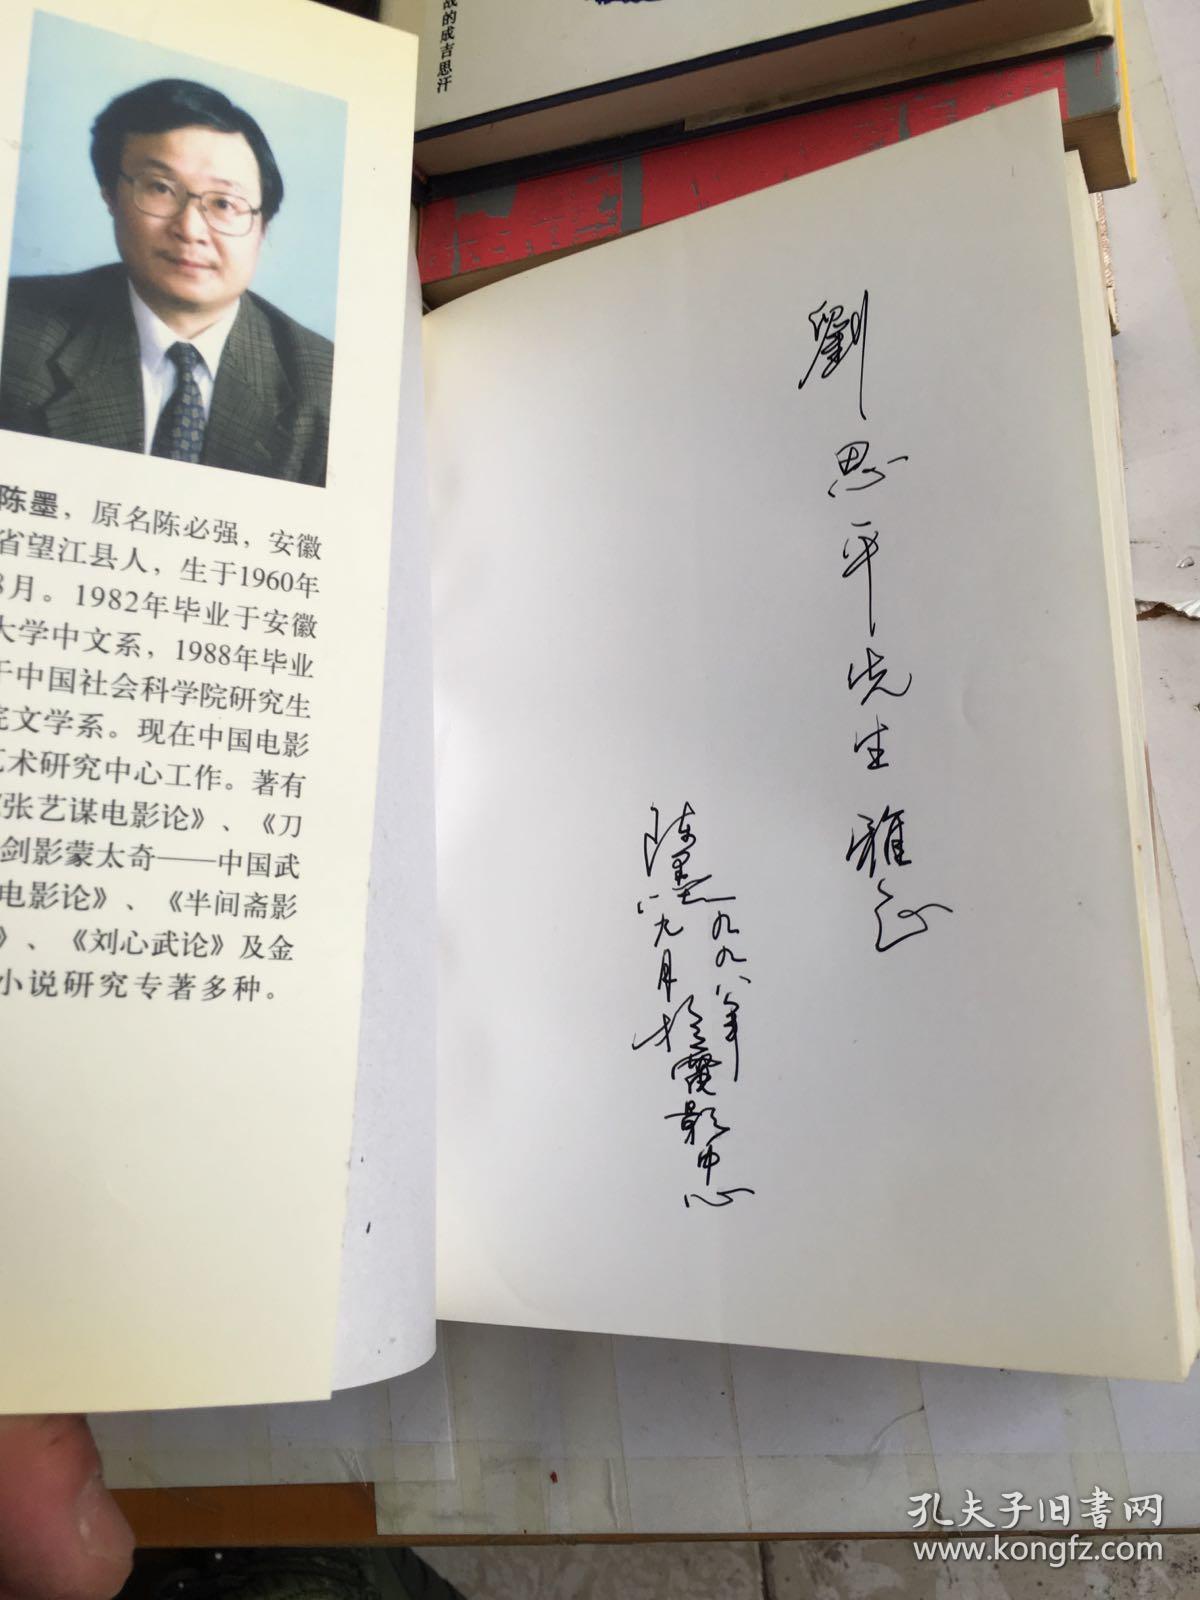 战的成吉思汗
陈墨，原名陈必强，安徽
省望江县人，生于1960年
8月。1982年毕业于安徽
大学中文系，1988年毕业
于中国社会科学院研究生
院文学系。现在中国电影
艺术研究中心工作。著有
《张艺谋电影论》、《刀
剑影蒙太奇——中国武
电影论》、《半间斋影
》、《刘心武论》及金
小说研究专著多种。
劉思平先生雅正
陈墨
一九九八年
八九月
於電影中心
孔夫子旧书网
www.kongfz.com